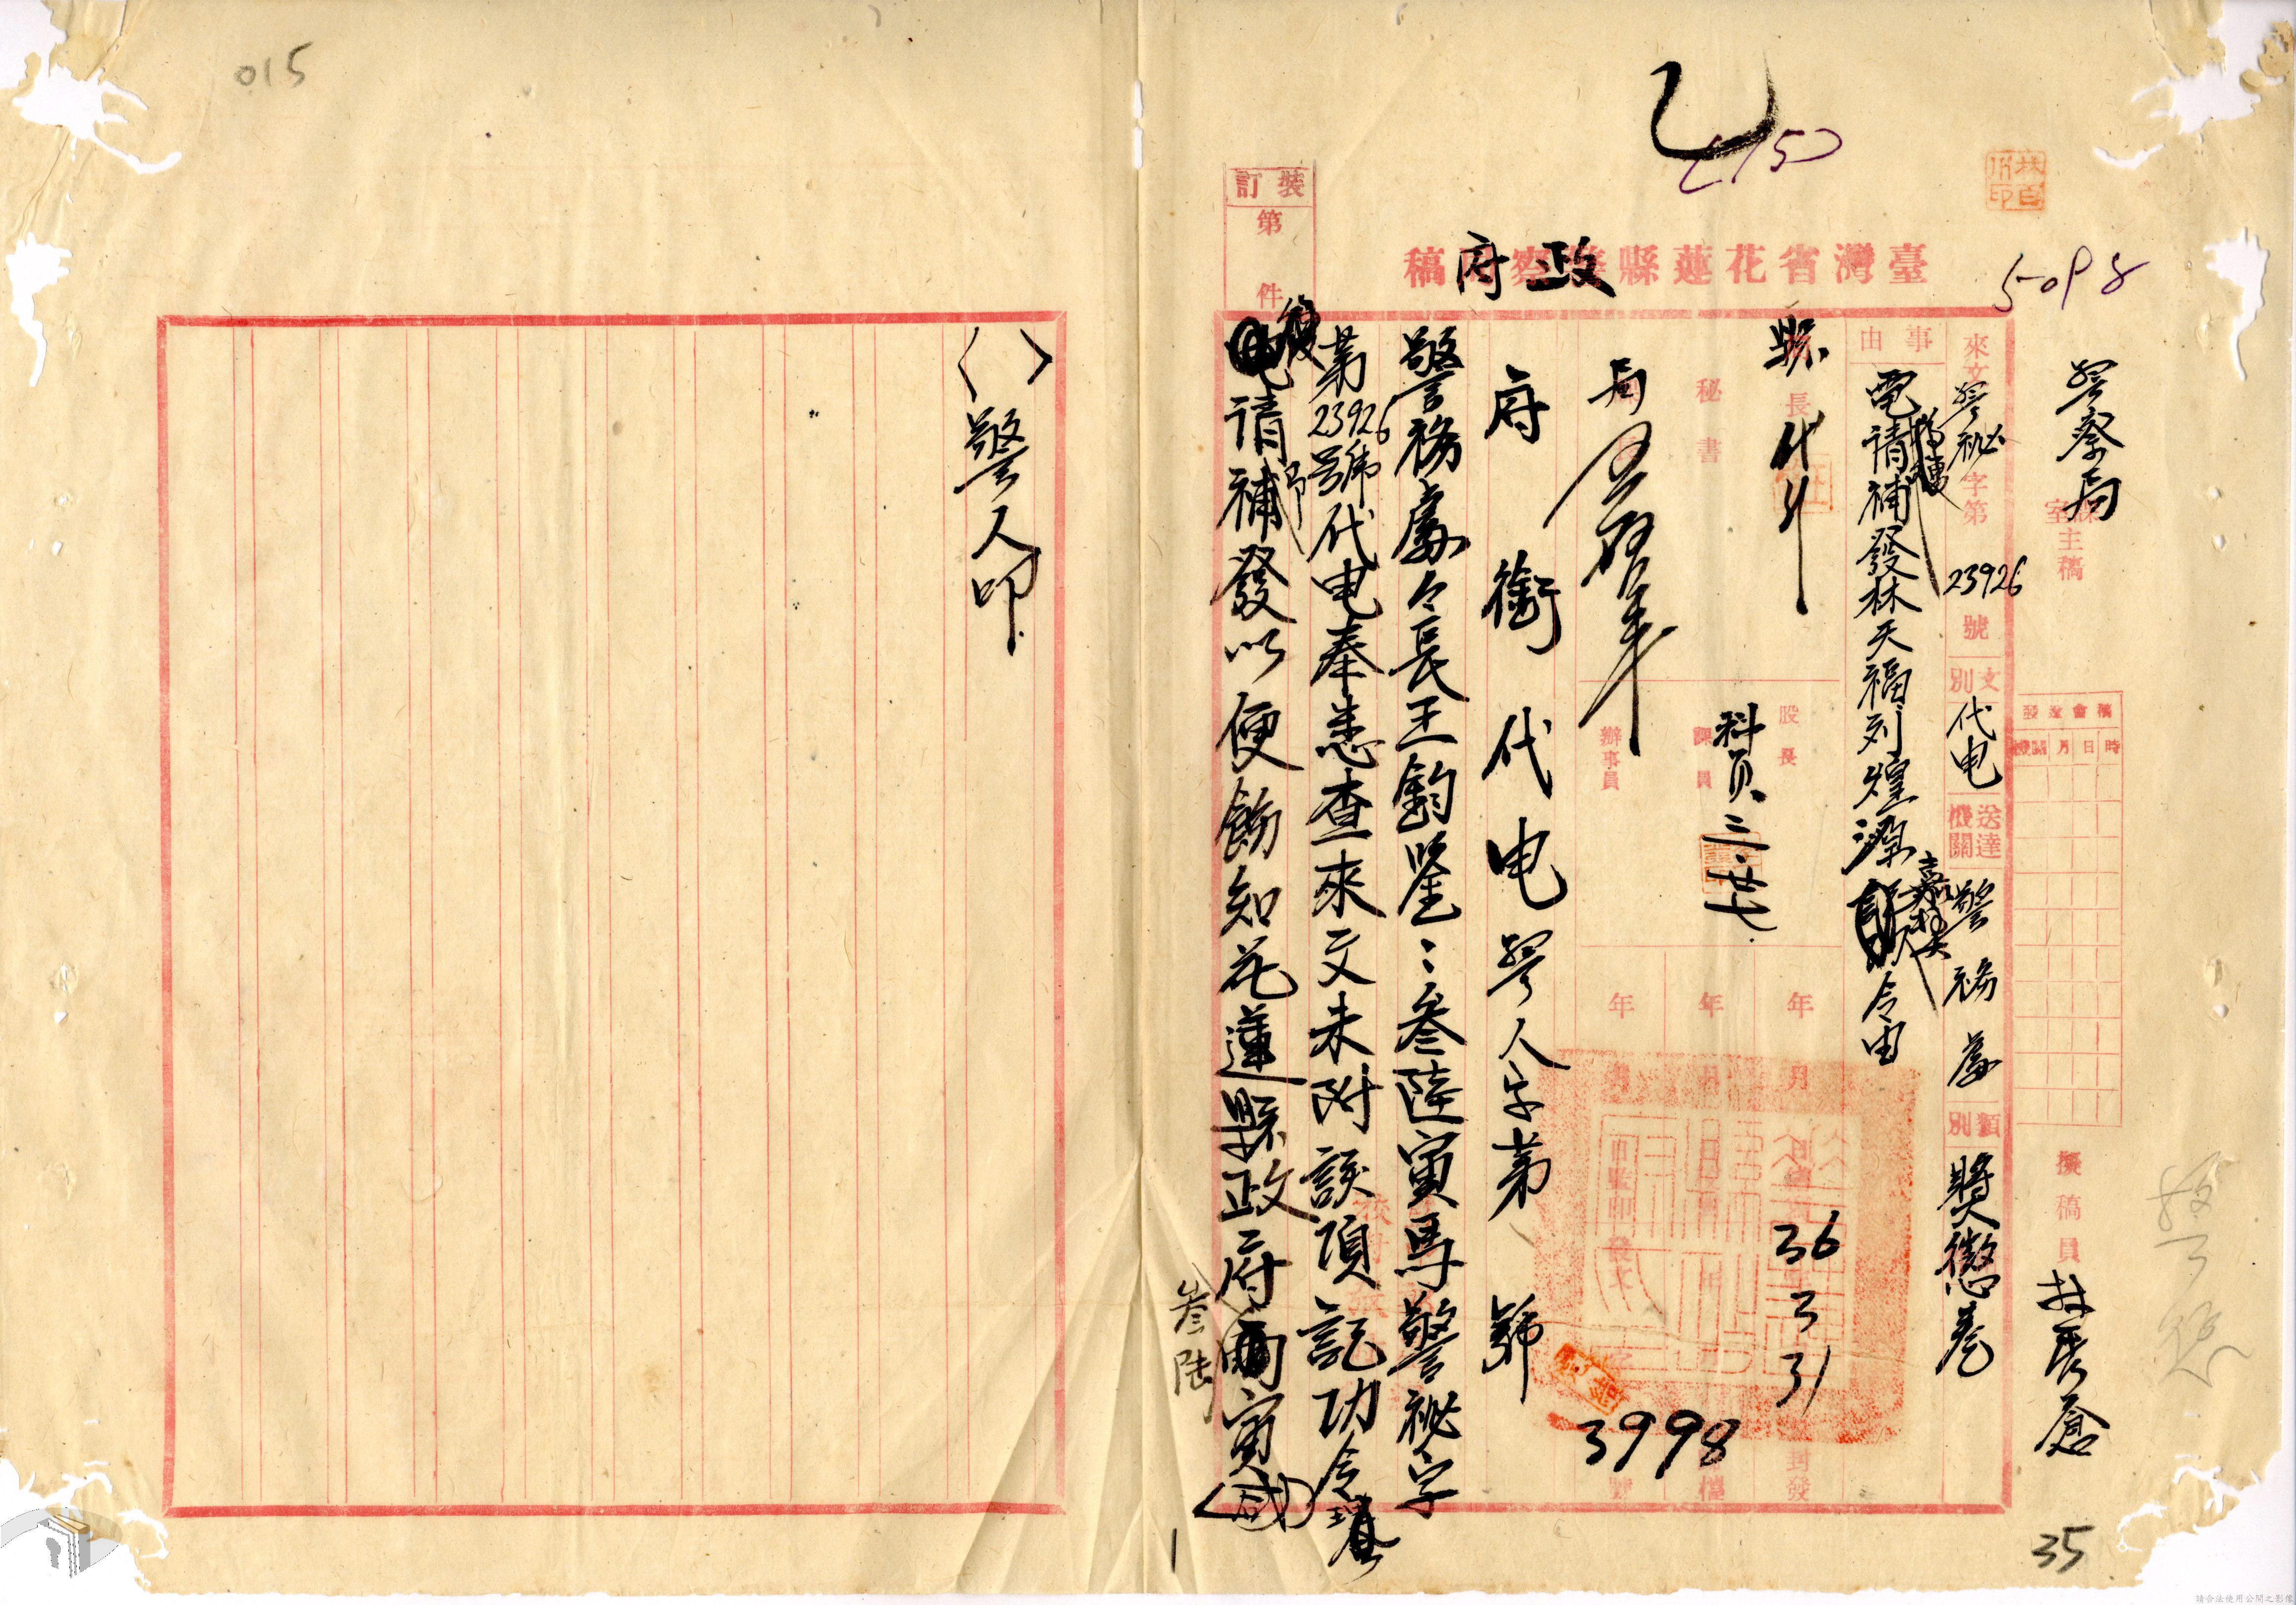 015
5098
臺灣省花蓮縣警察局稿
政府
裝訂
第 件
警察局
室主稿
擬稿員
來文 警秘字第 23926 號
文別 代电
送達機關 警務處
類別 獎懲卷
稿會發
時日月
事由
電請補發林天福列煌源嘉獎令由
縣長
秘書
局
股長
課員
科員 三.廿七
辦事員
年 月 日
36 3 31
封發
3998
府銜代电 警人字第 號
警務處處長王鈞鑒:叁陸寅馬警秘字
第23926號代电奉悉查來文未附該項記功令
復請即補發以便飭知花蓮縣政府
叁陸
寅
警人印
35
請合法使用公開之影像